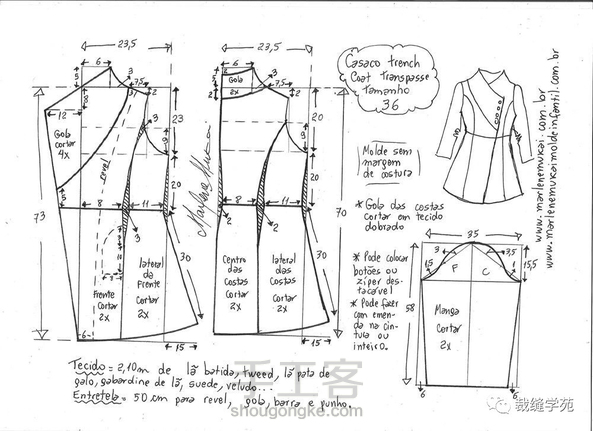 23,5
6
5
3
7,5
2
3
8
12
Gola
cortar
4x
revel
23
9
20
5
73
8
11
2
3
3
9
8
30
Frente
Cortar
2x
lateral
da
Frente
Cortar
2x
6
15
Marlene Mukai
23,5
6
2
5
Gola
3
7,5
2
2
20
9
20
70
8
11
2
3
30
Centro
das
Costas
Cortar
2x
lateral
das
Costas
Cortar
2x
15
Casaco trench
Coat Transpasse
Tamanho
36
Molde sem
margem
de costura
* Gola das costas
Cortar em tecido
dobrado
* Pode colocar
botões ou
zíper des-
tacável
* Pode fazer
com emenda
na cin-
tura ou
inteiro.
www.marlenemukai.com.br
www.marlenemukaimoldeinfantil.com.br
35
3
3,5
15
F
C
1
15,5
58
Manga
Cortar
2x
6
6
Tecido = 2,10m de lã batida, tweed, lã pata de
galo, gabardine de lã, suede, veludo...
Entretela = 50 cm para revel, gola, barra e punho.
手工客
shougongke.com
裁缝学苑